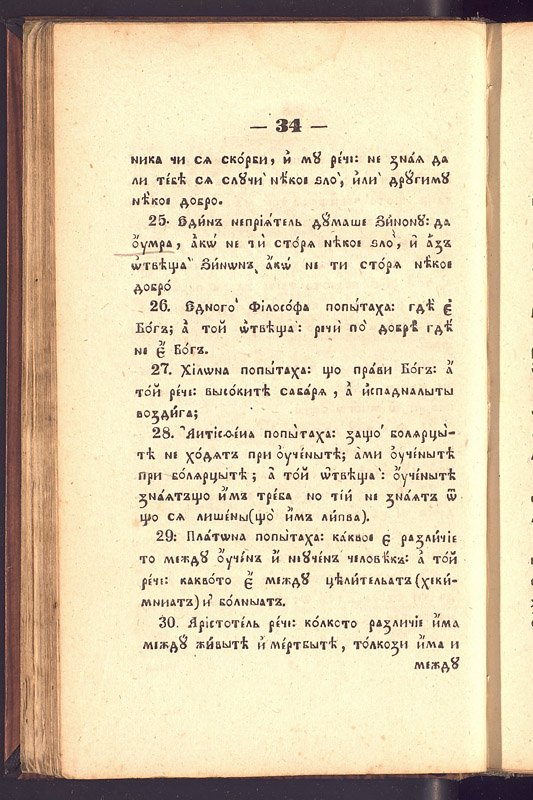 — 34 —
ника чи сѧ ско́рби, и҆ мꙋ ре́чі: не зна́ѧ да
ли те́бѣ сѧ слꙋчѝ нѣ́кое ѕло̀, и҆лѝ дрꙋ́гимꙋ
нѣ́кое добро.
25. Єди́нъ непрїѧ́тель дꙋ́маше Зи́нонꙋ: да
ᲂу҆мра, а҆кѡ не тѝ сто́рѧ нѣ́кое ѕло̀, и҆ а҆́зъ
ѿтвѣ́ща̀ Зи́нѡнъ, а҆́кѡ не ти сто́рѧ нѣ́кое
добро́
26. Єдного̀ Філосо́фа попы́таха: гдѣ̀ є҆́
Бо́гъ; а той ѿтвѣща̀: речѝ по̀ добрѣ̀ гдѣ̀
не є҆́ Бо́гъ.
27. Хіло́на попы́таха: що пра́ви Бо́гъ: а҆̀
то́й ре́чі: высо́ките саба́рѧ, а҆̀ и҆спадналыты
возди́га;
28. А҆нтісѳе́на попы́таха: защо̀ болѧрцы́-
тѣ не хо́дѧтъ при ᲂу҆че́нытѣ; а́ми ᲂу҆че́нытѣ
при бо́лѧрцытѣ; а҆̀ то́й ѿвѣ́ща̀: ᲂу҆че́нытѣ
зна́ѧтъщо и҆̀мъ тре́ба но ті́й не зна́ѧтъ ѿ
що сѧ лише́ны(що̀ и҆̀мъ ли́пва).
29: Пла́тѡна попы́таха: ка́квое є҆ разли́чіе
то междꙋ ᲂу҆че́нъ и҆̀ неꙋче́нъ человѣ́къ: а҆̀ то́й
ре́чє: какво́то є҆̀ междꙋ цѣли́тельатъ(хеки́-
мниатъ) и҆̀ бо́лныатъ.
30. Арісто́тель ре́чі: ко́лкото разли́чіе и҆́ма
междꙋ̀ жи́вытѣ и҆̀ ме́ртвытѣ, то́лкози и҆́ма и
междꙋ